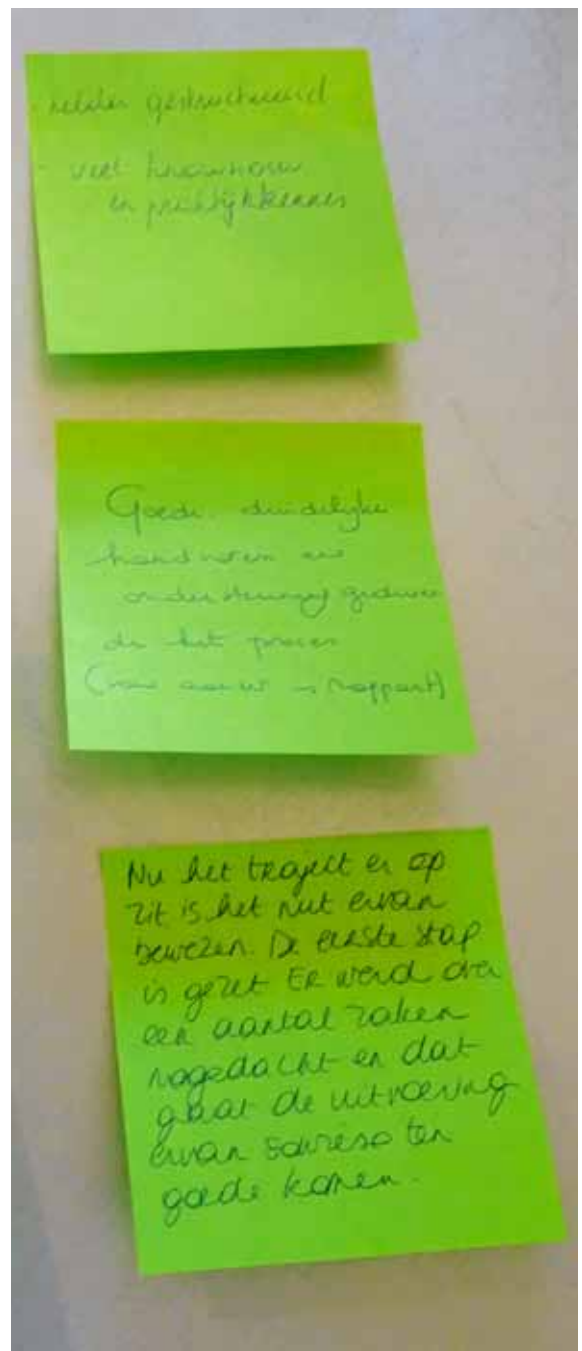 - helder gestructureerd
- veel knowhow
en praktijkkennis
Goede duidelijke
handvaten en
ondersteuning gedure
de het proces
(van aanvr is rapport)
Nu het traject er op
zit is het nut ervan
bewezen. De eerste stap
is gezet. Er werd over
een aantal zaken
nagedacht en dat
gaat de uitvoering
ervan sowieso ten
goede komen.